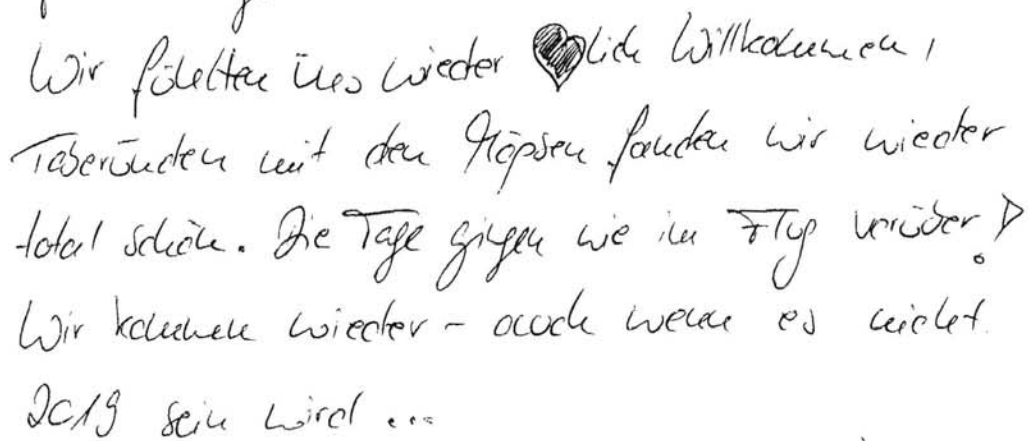 Wir fühlten uns wieder ♥lich Willkommen,
mit den Möpsen fanden wir wieder
total schön. Die Tage gingen wie im Flug vorüber!
Wir kommen wieder - auch wenn es nicht
2019 sein wird ...